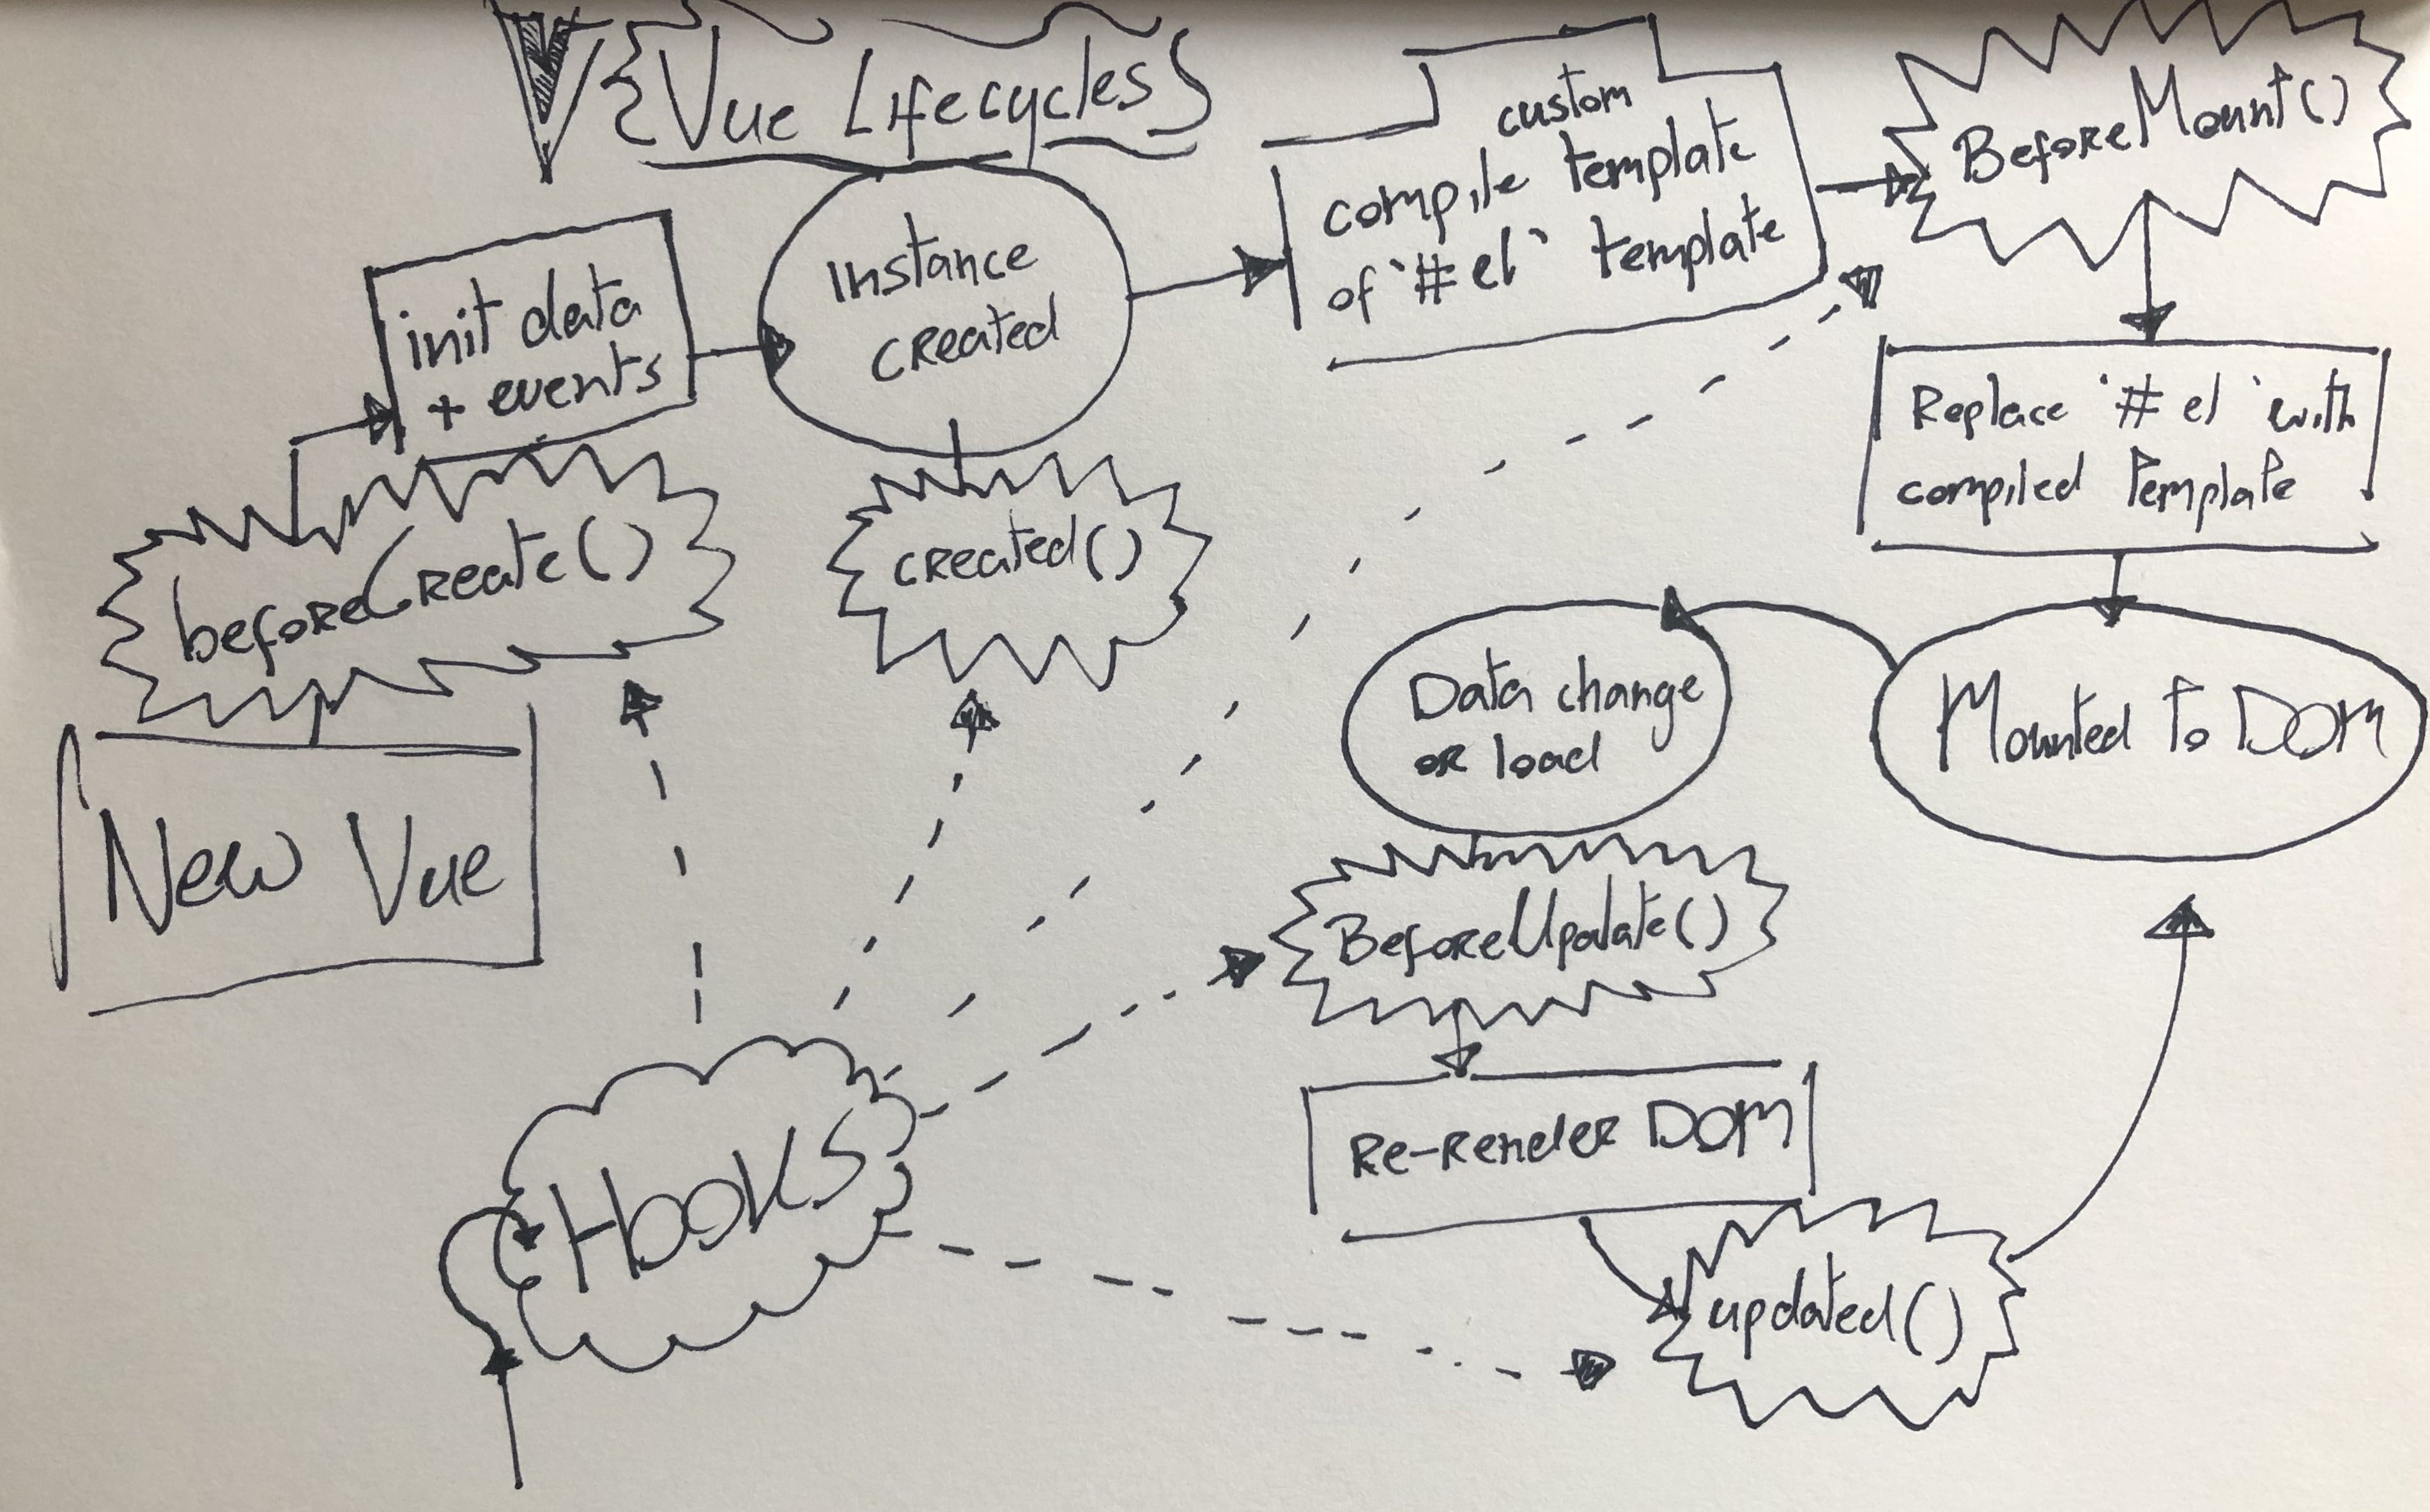 {Vue Lifecycles}
New Vue
beforeCreate()
init data
+ events
Instance
created
created()
custom
compile template
of `#el` template
BeforeMount()
Replace `#el` with
compiled template
Mounted to DOM
Data change
or load
BeforeUpdate()
Re-render DOM
updated()
Hooks